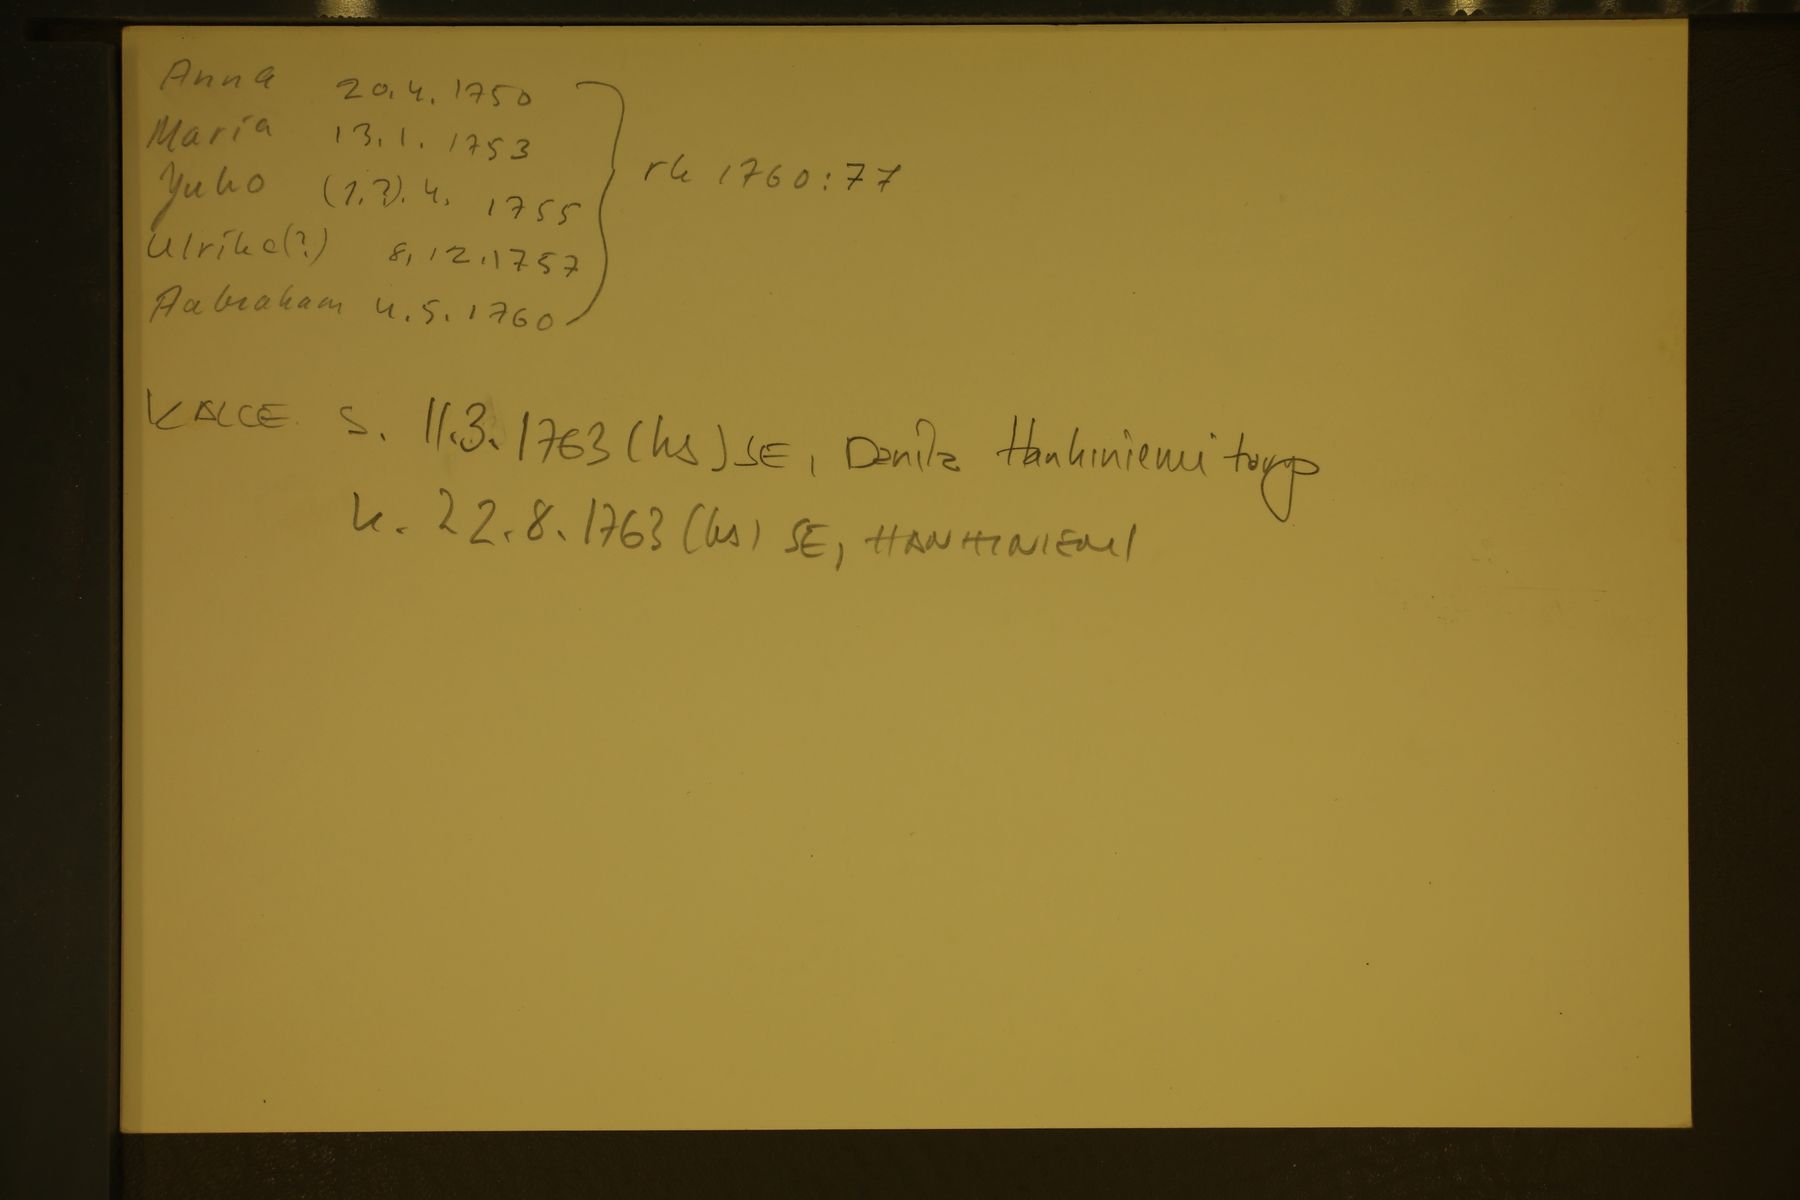 Anna 20.4.1750
Maria 13.1.1753
Juho (1.?).4. 1755
Ulrike(?) 8.12.1757
Aabraham 4.5.1760
rk 1760:77
KALLE S. 11.3.1763 (ks) SE, Danila Hanhiniemi torp
k. 22.8.1763 (ks) SE, HANHINIEMI